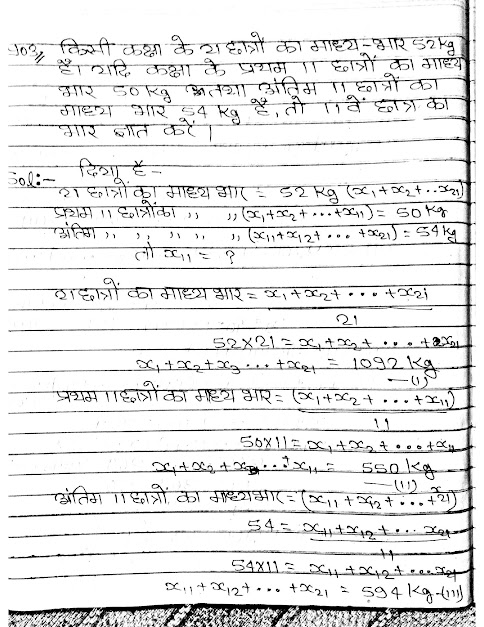 किसी कक्षा के 21 छात्रों का माध्य-भार 52kg
है। यदि कक्षा के प्रथम 11 छात्रों का माध्य
भार 50 kg तथा अंतिम 11 छात्रों का
माध्य भार 54 kg है, तो 11वें छात्र का
भार ज्ञात करें।
Sol:- दिया है-
21 छात्रों का माध्य भार = 52 kg (x₁+x₂+..x₂₁)
प्रथम 11 छात्रों का ,, ,, (x₁+x₂+...+x₁₁) = 50 kg
अंतिम ,, ,, ,, ,, ,, (x₁₁+x₁₂+...+x₂₁) = 54 kg
तो x₁₁ = ?
21 छात्रों का माध्य भार = x₁+x₂+...+x₂₁
21
52×21 = x₁+x₂+...+x₂₁
x₁+x₂+x₃...+x₂₁ = 1092 kg
—(i)
प्रथम 11 छात्रों का माध्य भार = (x₁+x₂+...+x₁₁)
11
50×11 = x₁+x₂+...+x₁₁
x₁+x₂+x₃...+x₁₁ = 550 kg
—(ii)
अंतिम 11 छात्रों का माध्य भार = (x₁₁+x₁₂+...+x₂₁)
54 = x₁₁+x₁₂+...x₂₁
11
54×11 = x₁₁+x₁₂+...x₂₁
x₁₁+x₁₂+...+x₂₁ = 594 kg-(iii)